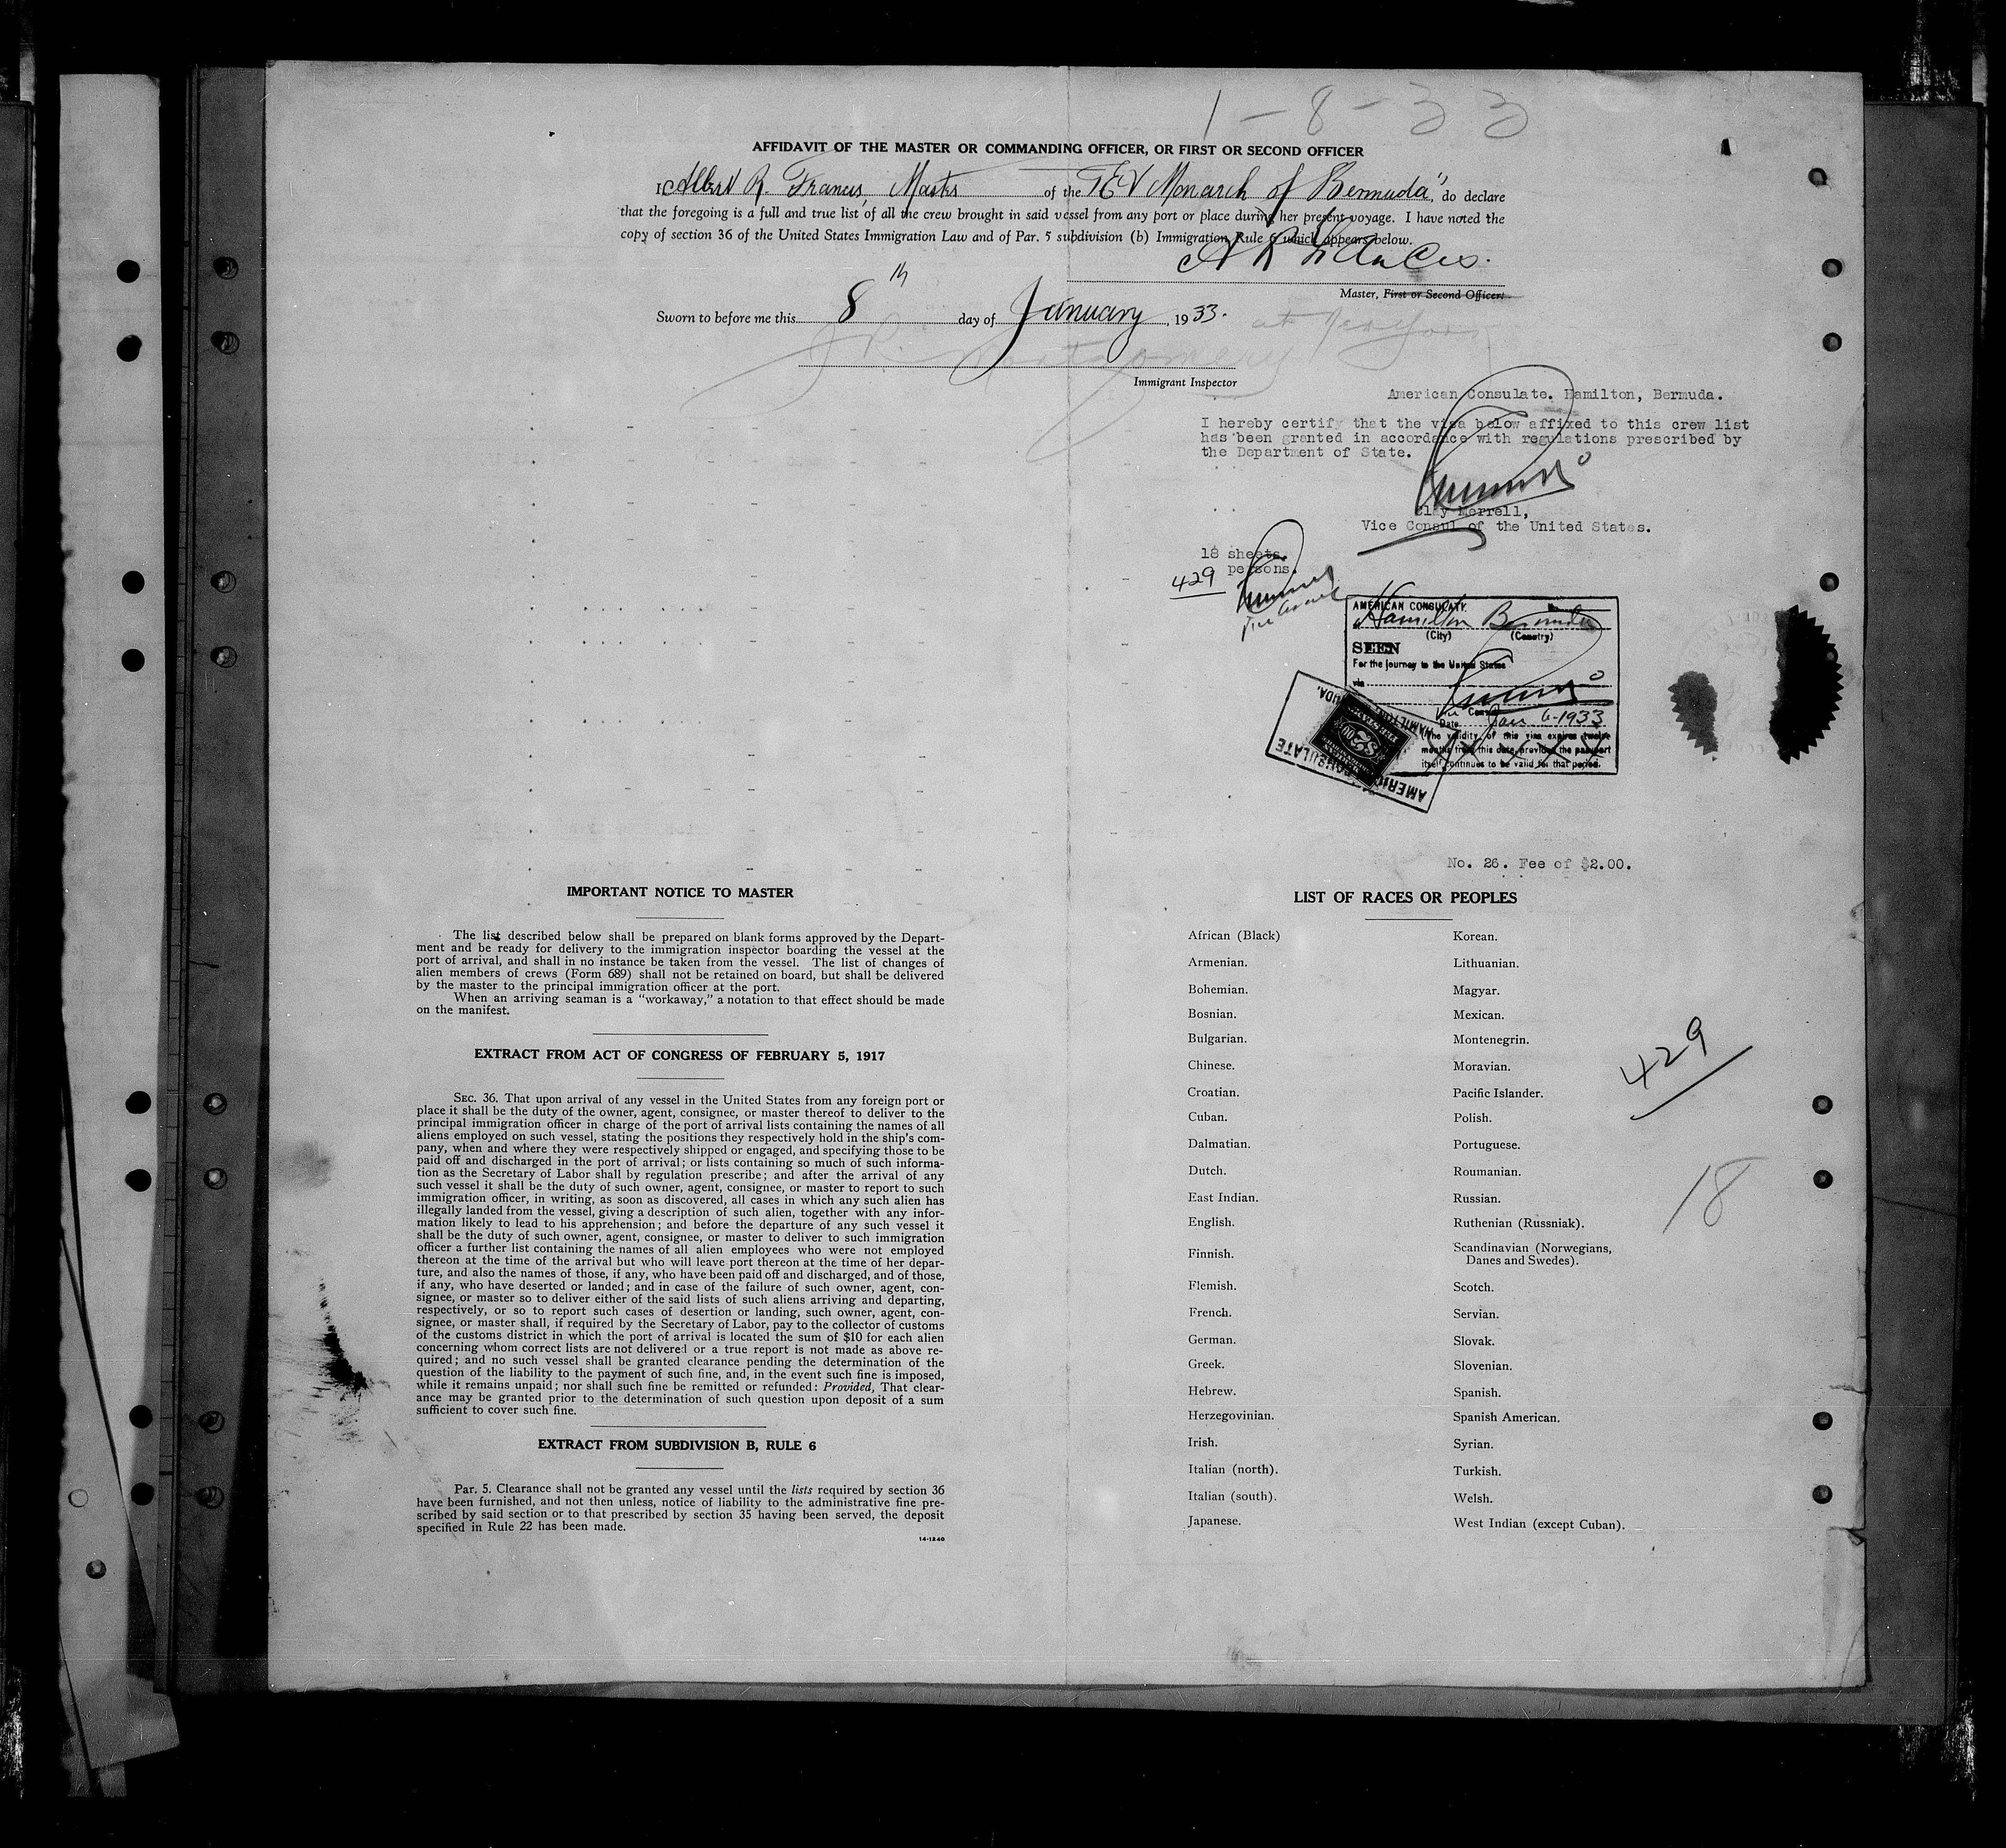 1-8-33
AFFIDAVIT OF THE MASTER OR COMMANDING OFFICER, OR FIRST OR SECOND OFFICER
I, Albert R. Francis, Master of the "TEV Monarch of Bermuda", do declare
that the foregoing is a full and true list of all the crew brought in said vessel from any port or place during her present voyage. I have noted the
copy of section 36 of the United States Immigration Law and of Par. 5 subdivision (b) Immigration Rule 6 which appears below.
A R Francis.
Master, First or Second Officer.
Sworn to before me this 8th day of January, 1933. at
Montgomery
Immigrant Inspector
American Consulate. Hamilton, Bermuda.
I hereby certify that the visa below affixed to this crew list
has been granted in accordance with regulations prescribed by
the Department of State.
Clay Merrell,
Vice Consul of the United States.
18 sheets.
429 persons.
Vice Consul
AMERICAN CONSULATE
Hamilton Bermuda
(City) (Country)
SEEN
For the journey to the United States
via
Vice Consul
Date Jan 6-1933
(The validity of this visa expires twelve
months from this date, provided the passport
itself continues to be valid for that period.
AMERICAN CONSULATE
HAMILTON, BERMUDA.
$2.00
No. 26. Fee of $2.00.
IMPORTANT NOTICE TO MASTER
The list described below shall be prepared on blank forms approved by the Depart-
ment and be ready for delivery to the immigration inspector boarding the vessel at the
port of arrival, and shall in no instance be taken from the vessel. The list of changes of
alien members of crews (Form 689) shall not be retained on board, but shall be delivered
by the master to the principal immigration officer at the port.
When an arriving seaman is a "workaway," a notation to that effect should be made
on the manifest.
EXTRACT FROM ACT OF CONGRESS OF FEBRUARY 5, 1917
SEC. 36. That upon arrival of any vessel in the United States from any foreign port or
place it shall be the duty of the owner, agent, consignee, or master thereof to deliver to the
principal immigration officer in charge of the port of arrival lists containing the names of all
aliens employed on such vessel, stating the positions they respectively hold in the ship's com-
pany, when and where they were respectively shipped or engaged, and specifying those to be
paid off and discharged in the port of arrival; or lists containing so much of such informa-
tion as the Secretary of Labor shall by regulation prescribe; and after the arrival of any
such vessel it shall be the duty of such owner, agent, consignee, or master to report to such
immigration officer, in writing, as soon as discovered, all cases in which any such alien has
illegally landed from the vessel, giving a description of such alien, together with any infor-
mation likely to lead to his apprehension; and before the departure of any such vessel it
shall be the duty of such owner, agent, consignee, or master to deliver to such immigration
officer a further list containing the names of all alien employees who were not employed
thereon at the time of the arrival but who will leave port thereon at the time of her depar-
ture, and also the names of those, if any, who have been paid off and discharged, and of those,
if any, who have deserted or landed; and in case of the failure of such owner, agent, con-
signee, or master so to deliver either of the said lists of such aliens arriving and departing,
respectively, or so to report such cases of desertion or landing, such owner, agent, con-
signee, or master shall, if required by the Secretary of Labor, pay to the collector of customs
of the customs district in which the port of arrival is located the sum of $10 for each alien
concerning whom correct lists are not delivered or a true report is not made as above re-
quired; and no such vessel shall be granted clearance pending the determination of the
question of the liability to the payment of such fine, and, in the event such fine is imposed,
while it remains unpaid; nor shall such fine be remitted or refunded: Provided, That clear-
ance may be granted prior to the determination of such question upon deposit of a sum
sufficient to cover such fine.
EXTRACT FROM SUBDIVISION B, RULE 6
Par. 5. Clearance shall not be granted any vessel until the lists required by section 36
have been furnished, and not then unless, notice of liability to the administrative fine pre-
scribed by said section or to that prescribed by section 35 having been served, the deposit
specified in Rule 22 has been made.
14-1240
LIST OF RACES OR PEOPLES
African (Black)
Armenian.
Bohemian.
Bosnian.
Bulgarian.
Chinese.
Croatian.
Cuban.
Dalmatian.
Dutch.
East Indian.
English.
Finnish.
Flemish.
French.
German.
Greek.
Hebrew.
Herzegovinian.
Irish.
Italian (north).
Italian (south).
Japanese.
Korean.
Lithuanian.
Magyar.
Mexican.
Montenegrin.
Moravian.
Pacific Islander.
Polish.
Portuguese.
Roumanian.
Russian.
Ruthenian (Russniak).
Scandinavian (Norwegians,
Danes and Swedes).
Scotch.
Servian.
Slovak.
Slovenian.
Spanish.
Spanish American.
Syrian.
Turkish.
Welsh.
West Indian (except Cuban).
429
18